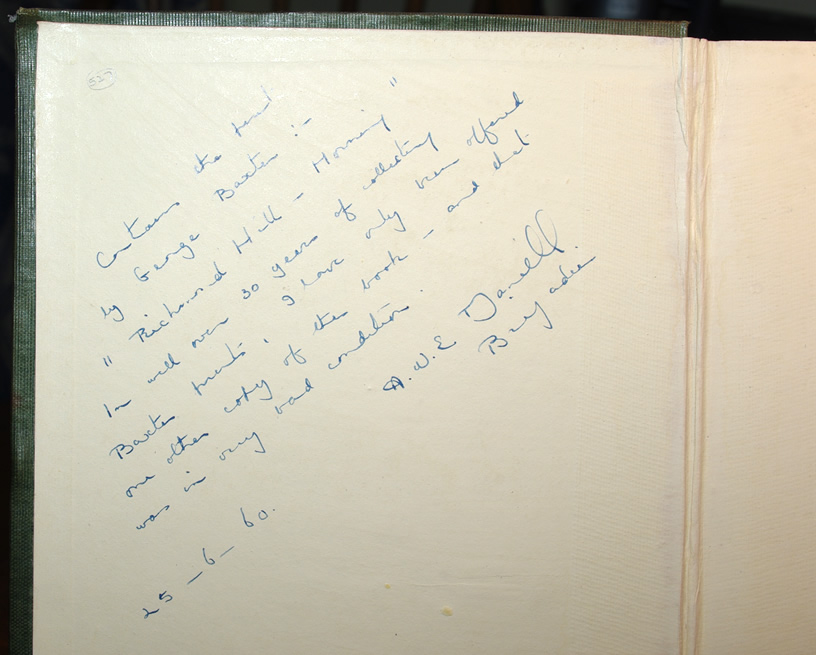 527
Contains the print
by George Baxter :-
" Richmond Hill - Morning "
In well over 30 years of collecting
Baxter prints, I have only been offered
one other copy of this book - and that
was in very bad condition.
A.W.E. Daniell.
Brigadier
25-6-60.